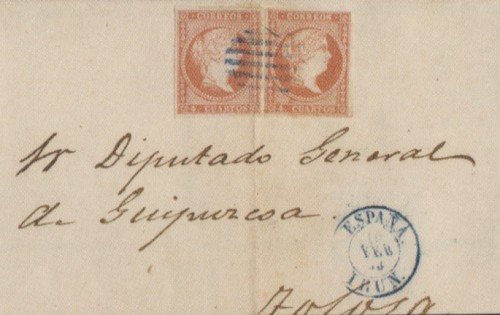 CORREOS CORREOS
4. CUARTOS 4. CUARTOS
Sr Diputado General
de Guipuzcoa.
ESPAÑA.
FEB
IRUN.
Tolosa.